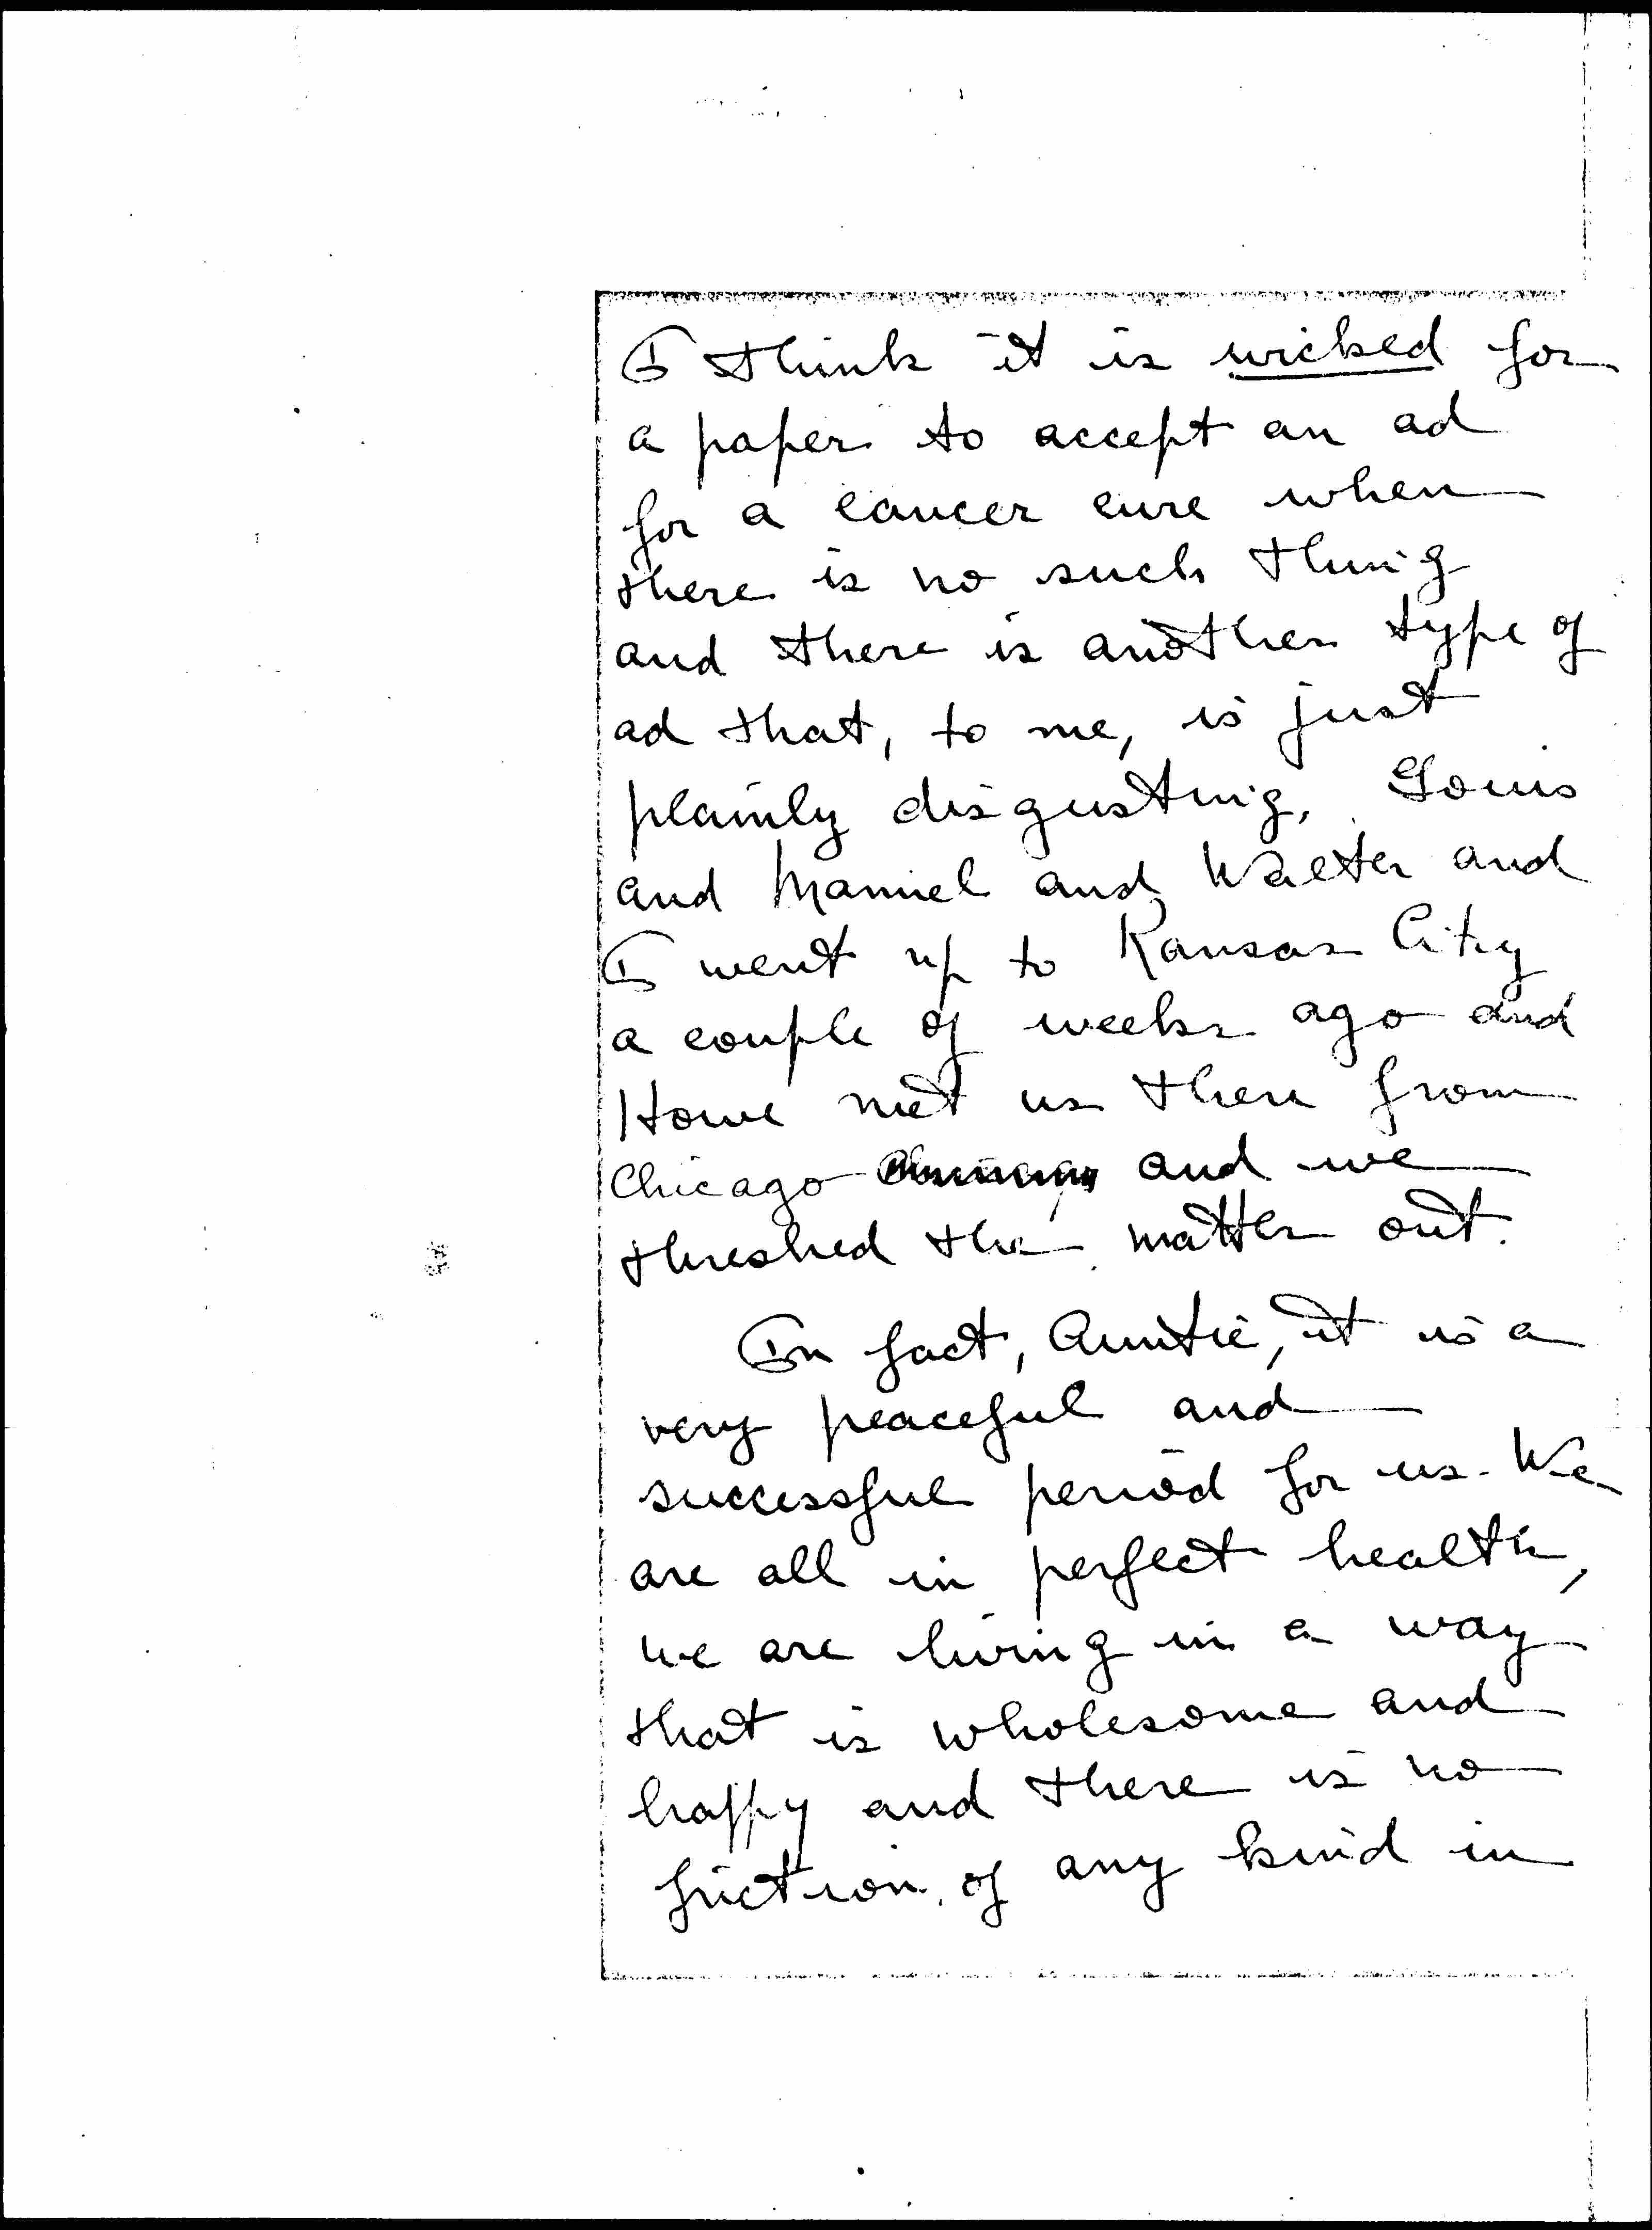 I think it is wicked for
a paper to accept an ad
for a cancer cure when
there is no such thing
and there is another type of
ad that, to me, is just
plainly disgusting. Louis
and Manuel and Walter and
I went up to Kansas City
a couple of weeks ago and
Howe met us there from
Chicago and we
threshed the matter out.
In fact, Auntie, it is a
very peaceful and
successful period for us. We
are all in perfect health,
we are living in a way
that is wholesome and
happy and there is no
friction of any kind in